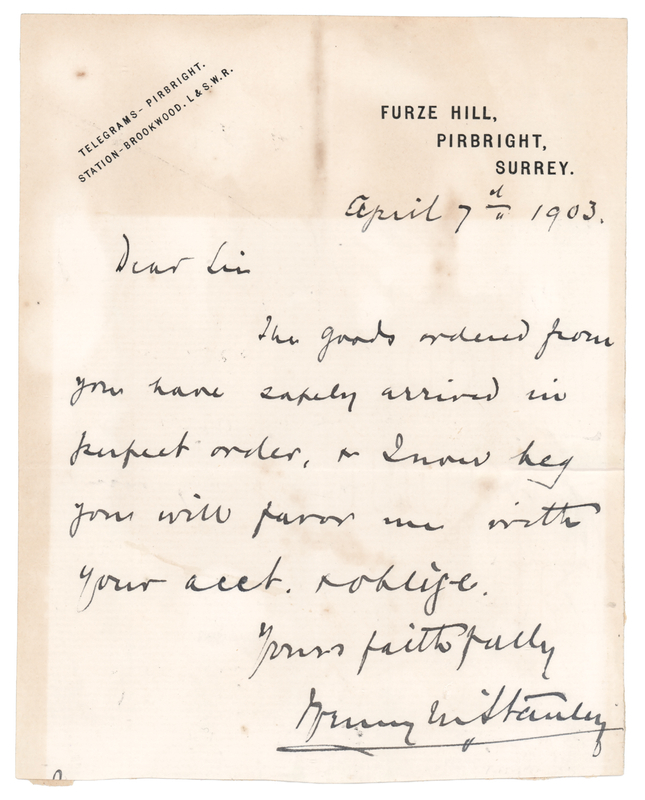 TELEGRAMS- PIRBRIGHT.
STATION-BROOKWOOD. L & S.W.R.
FURZE HILL,
PIRBRIGHT,
SURREY.
April 7 1903.
Dear Sir
The goods ordered from
you have safely arrived in
perfect order, & I now beg
you will favor me with
your acct. & oblige.
Yours faithfully
Henry M Stanley